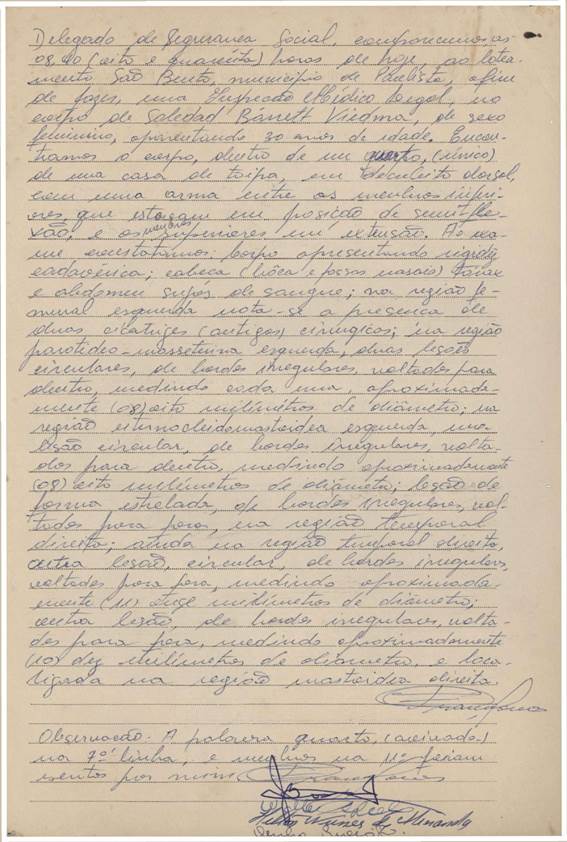 Delegado de Segurança Social, comparecemos, às
08,40 (oito e quarenta) horas de hoje, ao lotea-
mento São Bento, município de Paulista, afim
de fazer, uma Inspecção Médico Legal, no
corpo de Soledad Barrett Viedma, de sexo
feminino, aparentando 30 anos de idade. Encon-
tramos o corpo, dentro de um quarto, (único)
de uma casa de taipa, em decúbito dorsal,
com uma arma entre os membros inferi-
ores que estavam em posição de semi-fle-
xão, e os membros superiores em extensão. Ao exa-
me constatamos: corpo apresentando rigidez
cadavérica; cabeça (bôca e fossas nasais) tórax
e abdomen sujos de sangue; na região fe-
mural esquerda nota-se a presença de
duas cicatrizes (antigas) cirurgicas; na região
parotideo-masseterina esquerda, duas lesões
circulares, de bordos irregulares, voltados para
dentro, medindo cada uma, aproximada-
mente (08) oito milímetros de diâmetro; na
região esternocleidomastoidea esquerda, uma
lesão circular, de bordos irregulares, volta-
dos para dentro, medindo aproximadamente
(08) oito milímetros de diâmetro; lesão de
forma estrelada, de bordos irregulares, vol-
tados para fora, na região temporal
direita; ainda na região temporal direita,
outra lesão, circular, de bordos irregulares,
voltados para fora, medindo aproximada-
mente (11) onze milímetros de diâmetro;
outra lesão, de bordos irregulares, volta-
dos para fora, medindo aproximadamente
(10) dez milímetros de diâmetro, e loca-
lizada na região mastoidea direita.
Observação. A palavra quarto,
na 7ª linha, e membros na 11ª foram
por mim
Nunes de Miranda